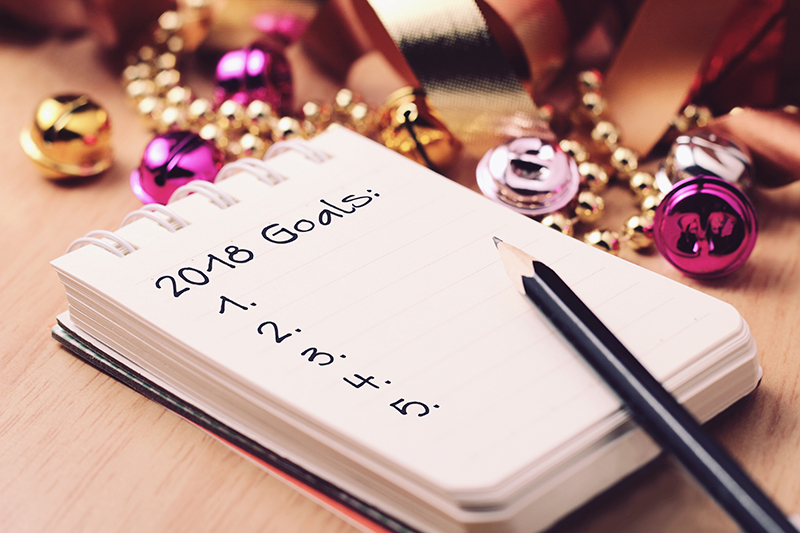 2018 Goals:
1.
2.
3.
4.
5.